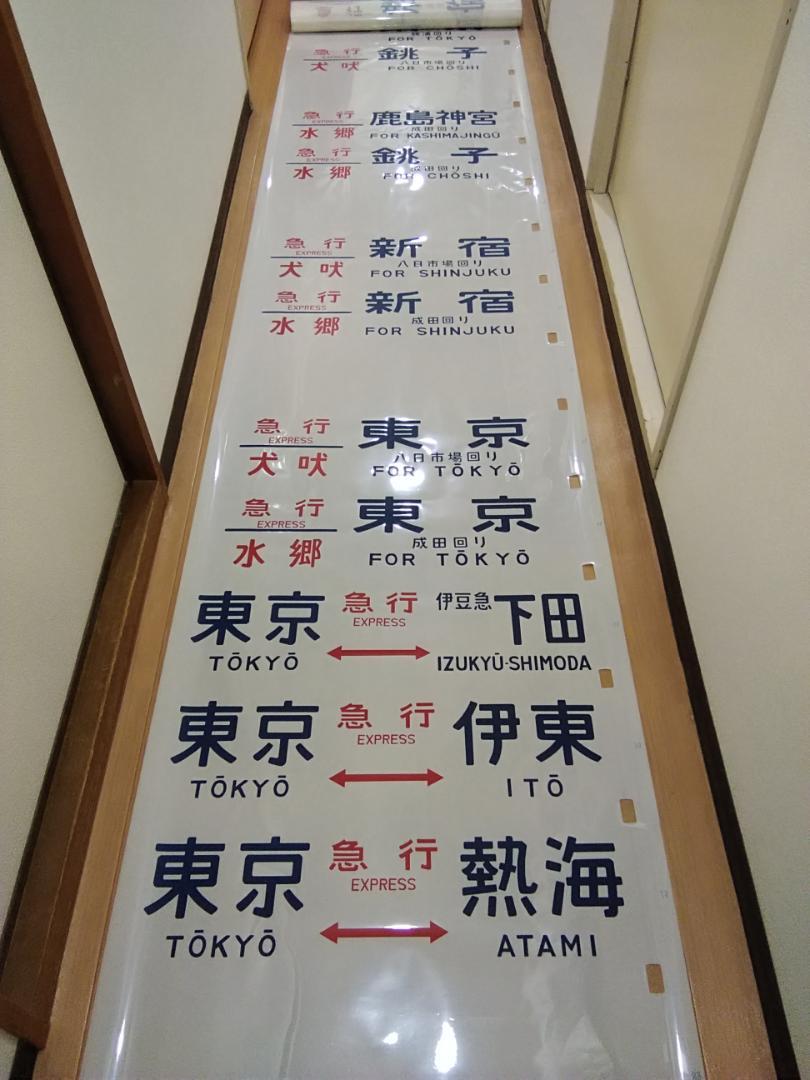 FOR TŌKYŌ
急行 銚子
EXPRESS 八日市場回り
犬吠 FOR CHŌSHI
急行 鹿島神宮
EXPRESS 成田回り
水郷 FOR KASHIMAJINGŪ
急行 銚子
EXPRESS 成田回り
水郷 FOR CHŌSHI
急行 新宿
EXPRESS 八日市場回り
犬吠 FOR SHINJUKU
急行 新宿
EXPRESS 成田回り
水郷 FOR SHINJUKU
急行 東京
EXPRESS 八日市場回り
犬吠 FOR TŌKYŌ
急行 東京
EXPRESS 成田回り
水郷 FOR TŌKYŌ
東京 急行 伊豆急下田
EXPRESS
TŌKYŌ IZUKYŪ-SHIMODA
東京 急行 伊東
EXPRESS
TŌKYŌ ITŌ
東京 急行 熱海
EXPRESS
TŌKYŌ ATAMI